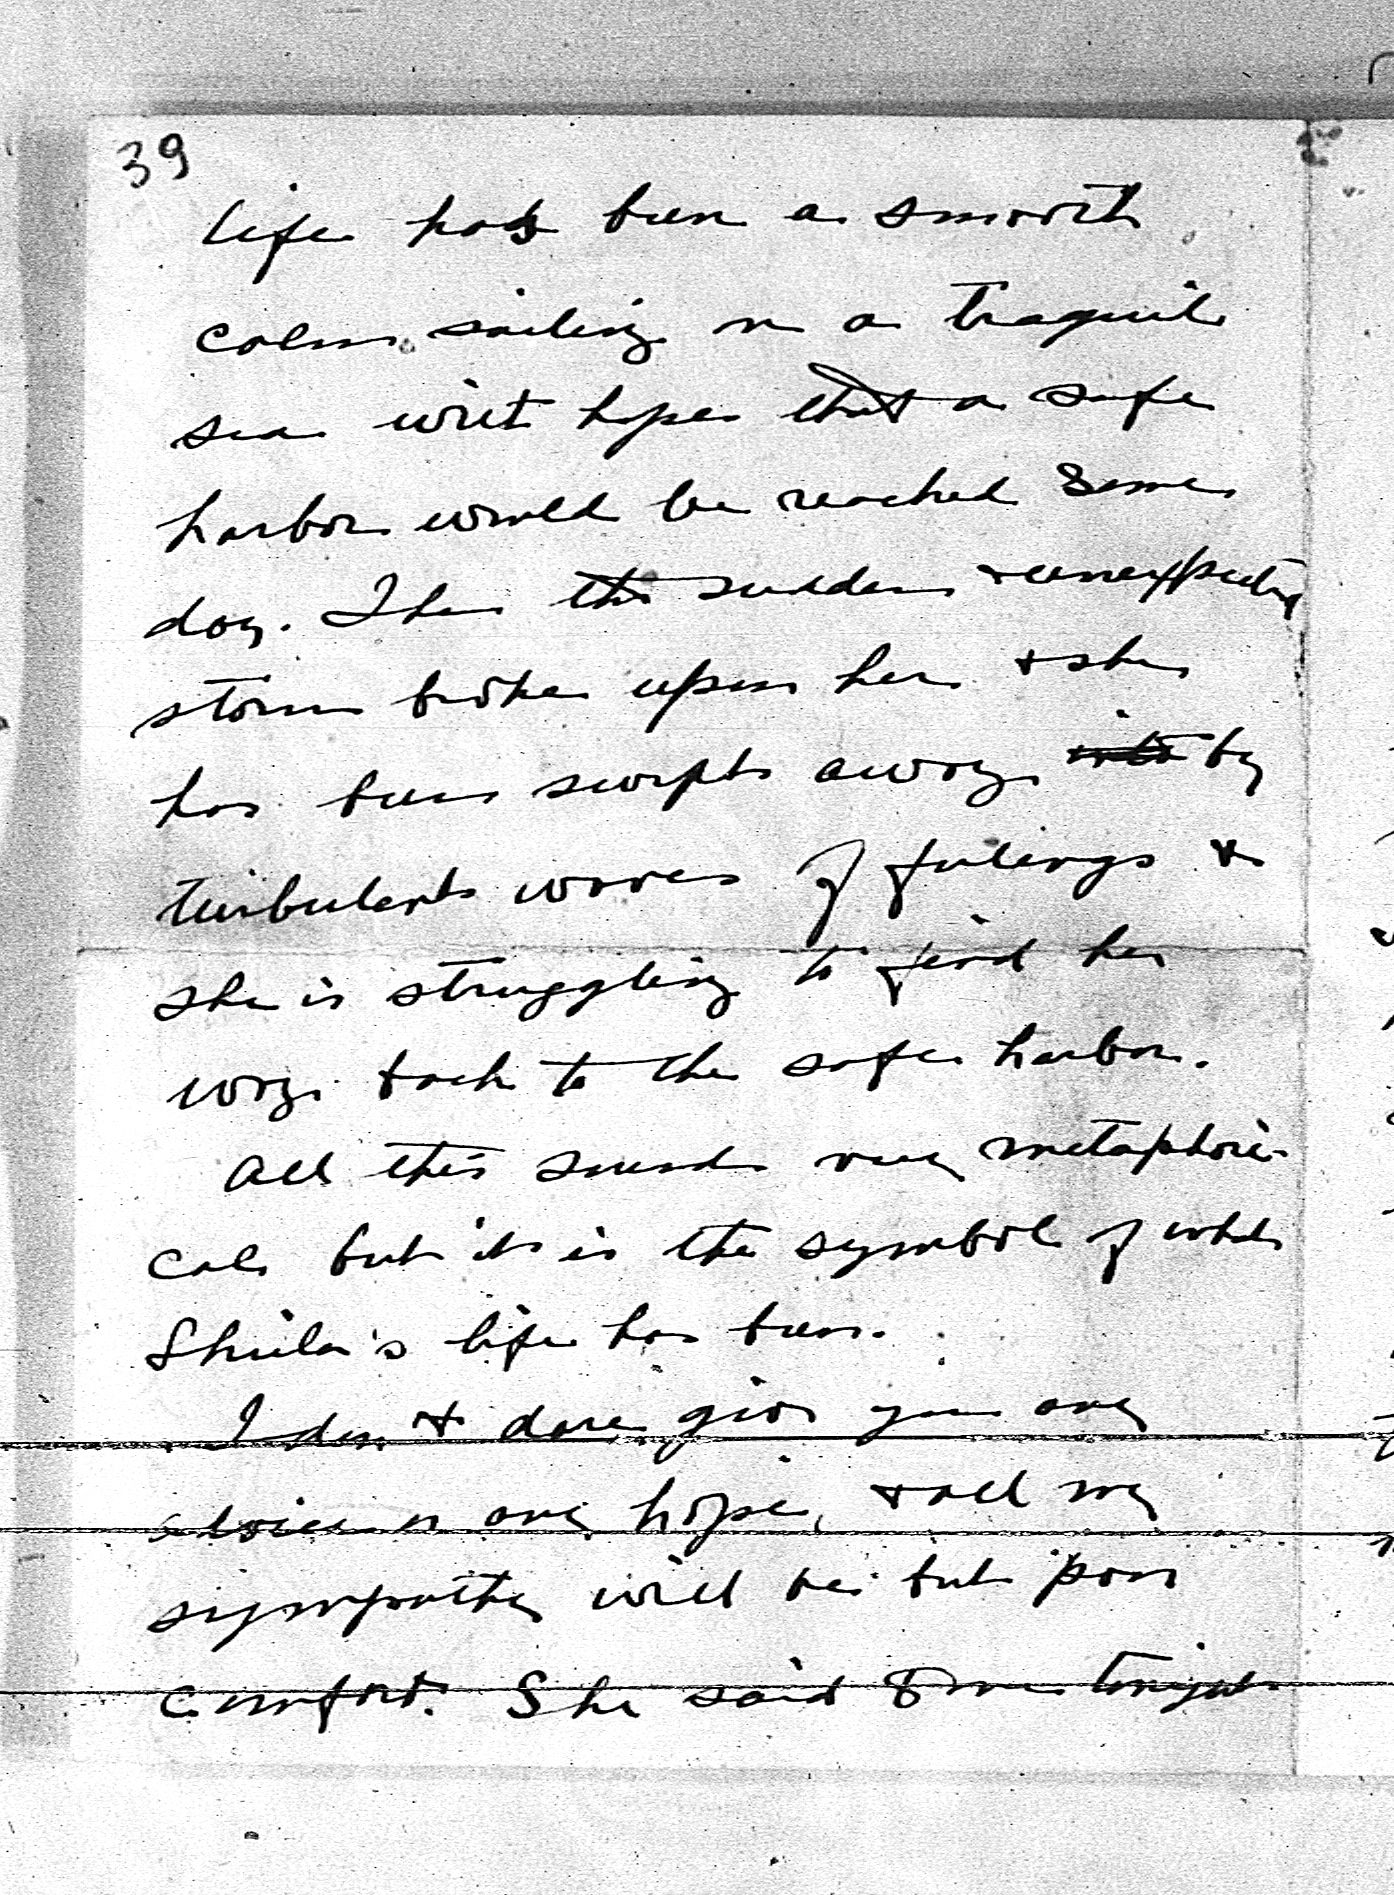 39
life has been a smooth
calm sailing on a traquil
sea with hopes that a safe
harbor would be reached some
day. Then the sudden & unexpected
storm broke upon her & she
has been swept away by
turbulent waves of feelings &
she is struggling to find her
way back to the safe harbor.
All this sounds very metaphori-
cal but it is the symbol of what
Sheila's life has been.
I don't dare give you any
advice or any hope, & all my
sympathy will be but poor
comfort. She said to me tonight